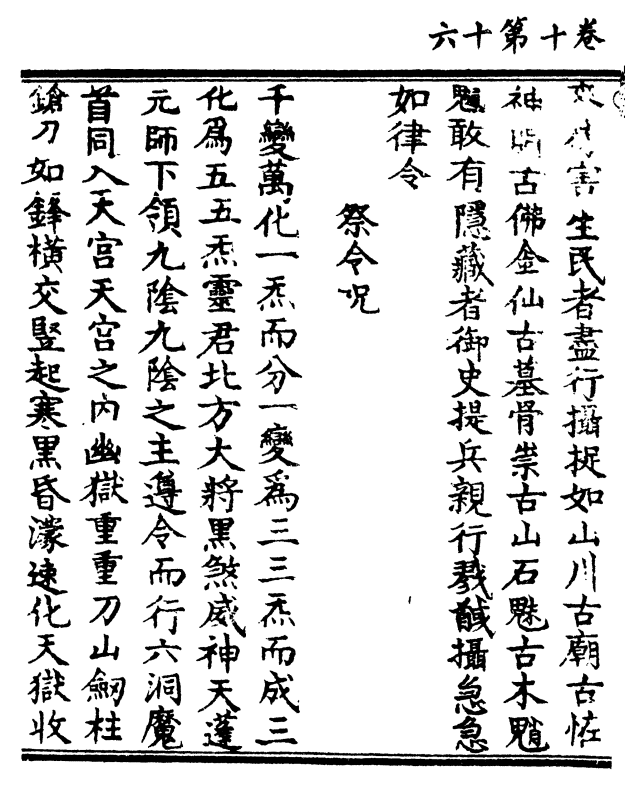 卷十第十六
害生民者盡行攝捉如山川古廟古怪
神明古佛金仙古墓骨祟古山石魅古木魈
敢有隱藏者御史提兵親行戮馘攝急急
如律令
祭令呪
千變萬化一炁而分一變爲三三炁而成三
化爲五五炁靈君北方大將黑煞威神天蓬
元師下領九陰九陰之主遵令而行六洞魔
首同入天宮天宮之內幽獄重重刀山劒柱
鎗刀如鋒橫交竪起寒黑昏濛速化天獄收